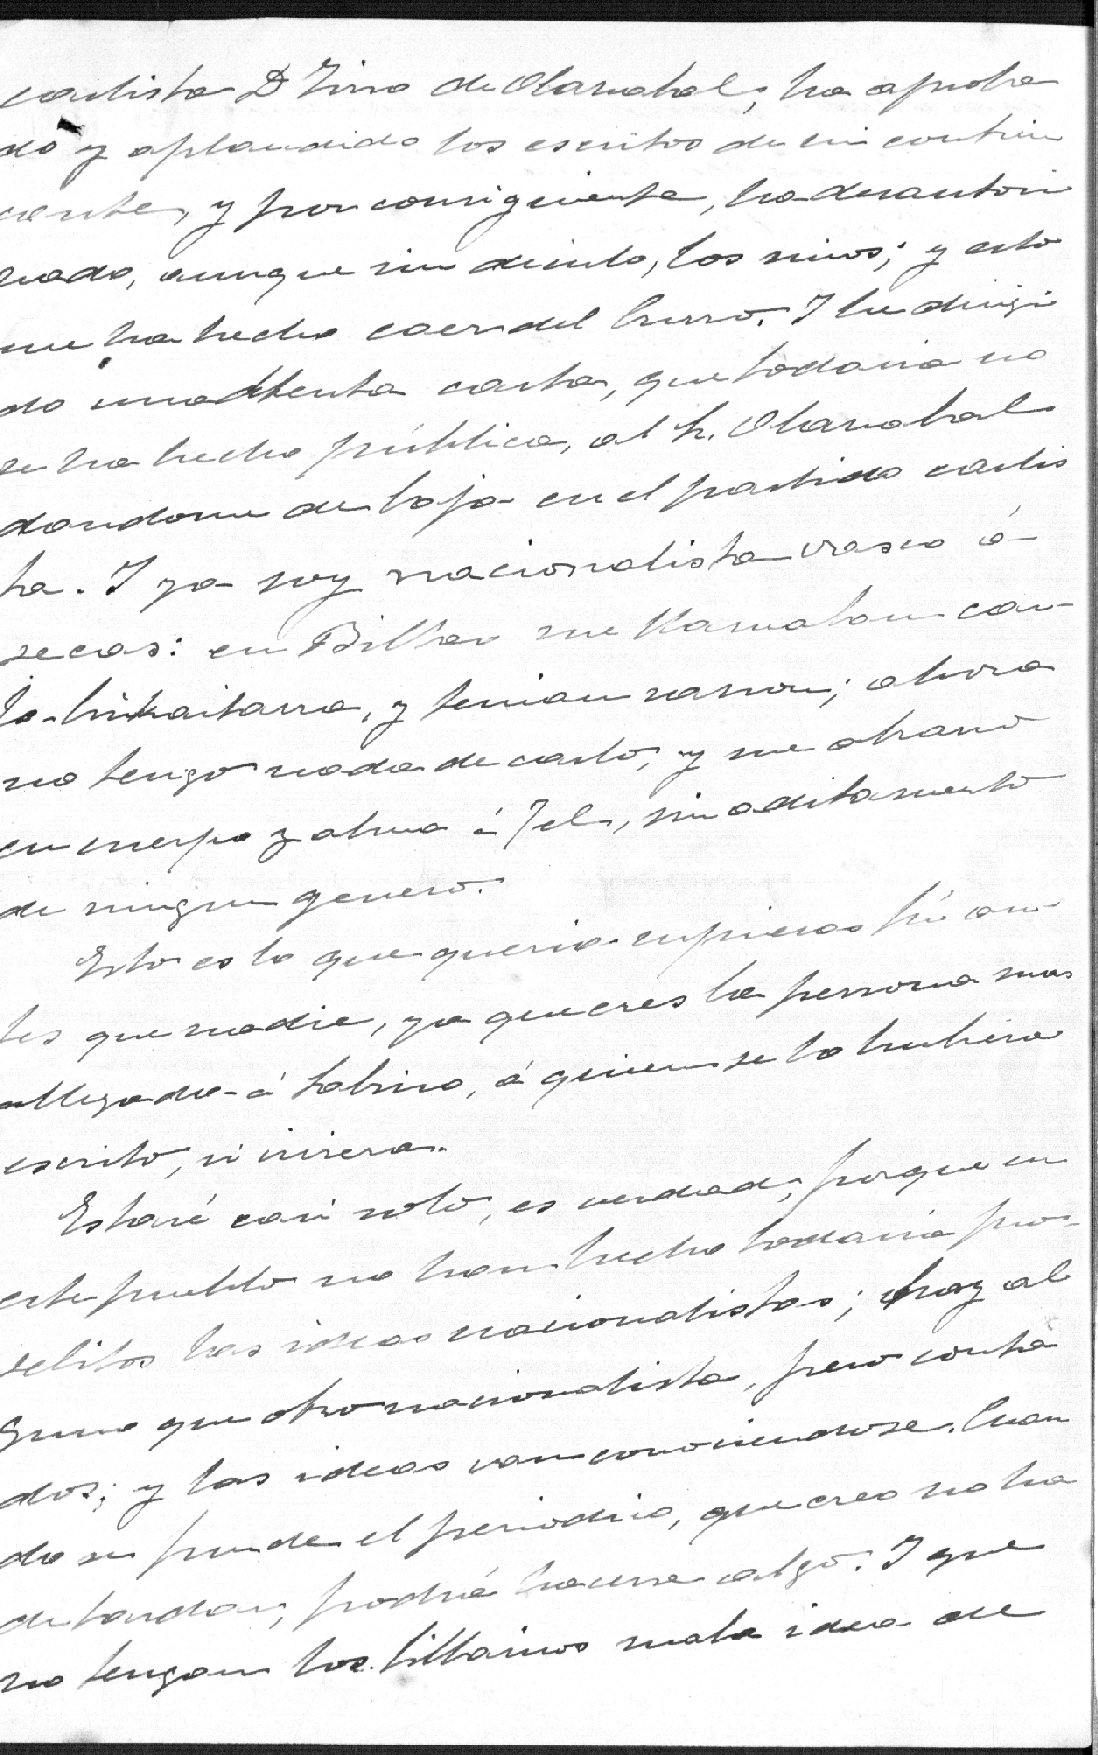 carlista D Tirso de Olazabal, ha aproba
do y aplaudido los escritos de mi contrin
cante, y por consiguiente, ha desautori
zado, aunque sin decirlo, los mios; y esto
me ha hecho caer del burro. I he dirigi
do una atenta carta, que todavia no
se ha hecho pública, al Sr. Olazabal
dandome de baja en el partido carlis
ta. I ya soy nacionalista vasco á
secas: en Bilbao me llamaban car-
lo-bizkaitarra, y tenian razon; ahora
no tengo nada de carlo, y me abrazo
en cuerpo y alma á Jel, sin aditamento
de ningun genero.
Esto es lo que queria supieras tú an-
tes que nadie, ya que eres la persona mas
allegada á Sabino, á quien se lo hubiera
escrito, si viviera.
Estaré casi solo, es verdad; porque en
este pueblo no han hecho todavia pro-
sélitos las ideas nacionalistas; hay al
guno que otro nacionalista, pero conta
dos; y las ideas van conociendose. Cuan
do se funde el periodico, que creo no ha
de tardar, podrá hacerse algo. I que
no tengan los bilbainos mala idea de